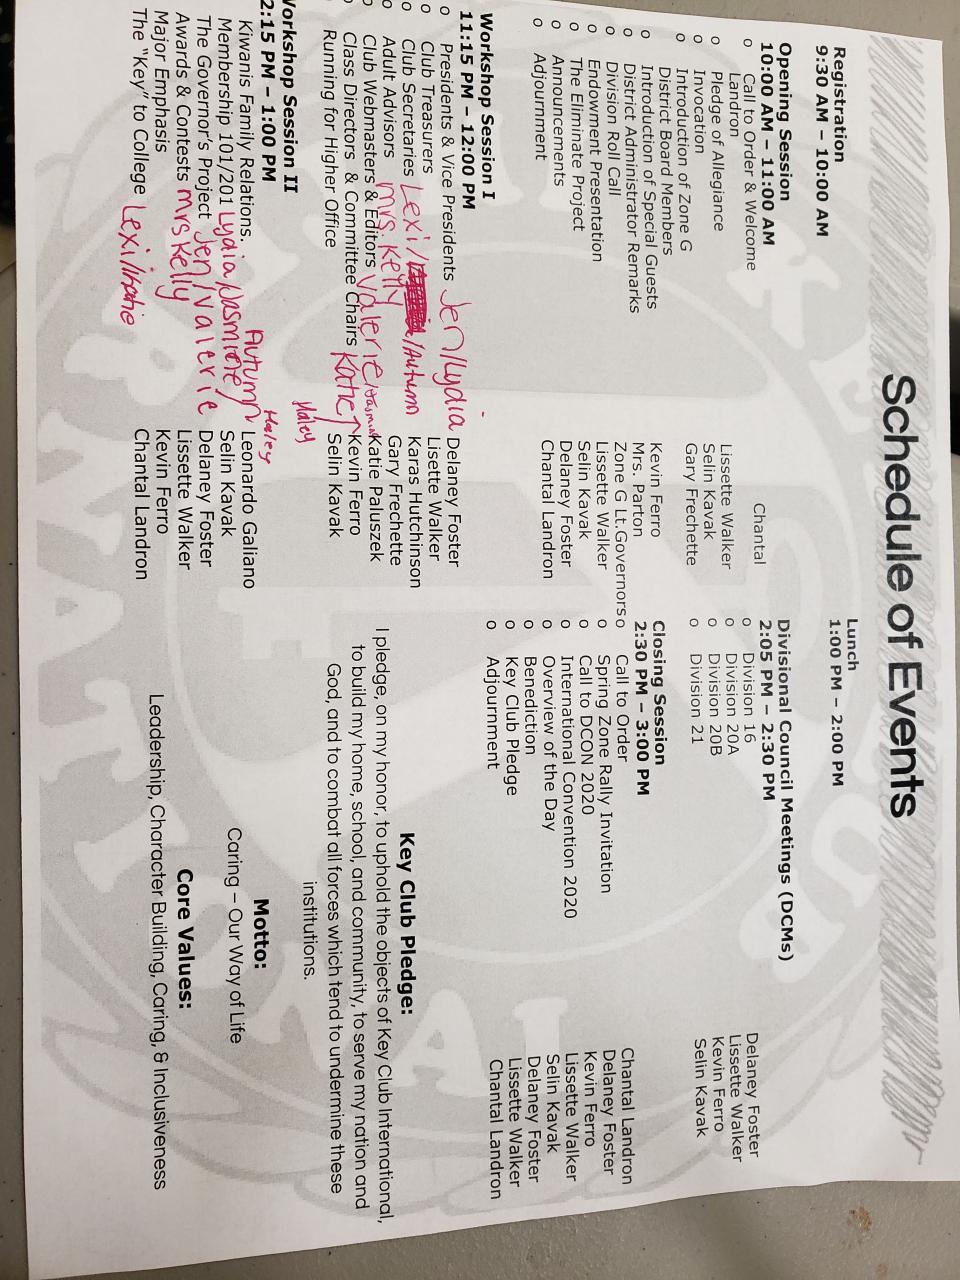 Schedule of Events
Registration
9:30 AM – 10:00 AM
Opening Session
10:00 AM – 11:00 AM
o Call to Order & Welcome Chantal
Landron
o Pledge of Allegiance Lissette Walker
o Invocation Selin Kavak
o Introduction of Zone G Gary Frechette
District Board Members
o Introduction of Special Guests Kevin Ferro
o District Administrator Remarks Mrs. Parton
o Division Roll Call Zone G Lt.Governors
o Endowment Presentation Lissette Walker
o The Eliminate Project Selin Kavak
o Announcements Delaney Foster
o Adjournment Chantal Landron
Workshop Session I
11:15 PM – 12:00 PM
o Presidents & Vice Presidents Jen/Lydia Delaney Foster
o Club Treasurers Lisette Walker
o Club Secretaries Lexi/ /Autumn Karas Hutchinson
o Adult Advisors Mrs. Kelly Gary Frechette
o Club Webmasters & Editors Valerie/Jasmine Katie Paluszek
o Class Directors & Committee Chairs Katie Kevin Ferro
Running for Higher Office Haley Selin Kavak
Workshop Session II
2:15 PM – 1:00 PM
Kiwanis Family Relations. Autumn Haley Leonardo Galiano
Membership 101/201 Lydia, Jasmine Selin Kavak
The Governor's Project Jen/Valerie Delaney Foster
Awards & Contests Mrs Kelly Lissette Walker
Major Emphasis Kevin Ferro
The "Key" to College Lexi/Katie Chantal Landron
Lunch
1:00 PM – 2:00 PM
Divisional Council Meetings (DCMs)
2:05 PM – 2:30 PM
o Division 16 Delaney Foster
o Division 20A Lissette Walker
o Division 20B Kevin Ferro
o Division 21 Selin Kavak
Closing Session
2:30 PM – 3:00 PM
o Call to Order Chantal Landron
o Spring Zone Rally Invitation Delaney Foster
o Call to DCON 2020 Kevin Ferro
o International Convention 2020 Lissette Walker
o Overview of the Day Selin Kavak
o Benediction Delaney Foster
o Key Club Pledge Lissette Walker
o Adjournment Chantal Landron
Key Club Pledge:
I pledge, on my honor, to uphold the objects of Key Club International,
to build my home, school, and community, to serve my nation and
God, and to combat all forces which tend to undermine these
institutions.
Motto:
Caring – Our Way of Life
Core Values:
Leadership, Character Building, Caring, & Inclusiveness